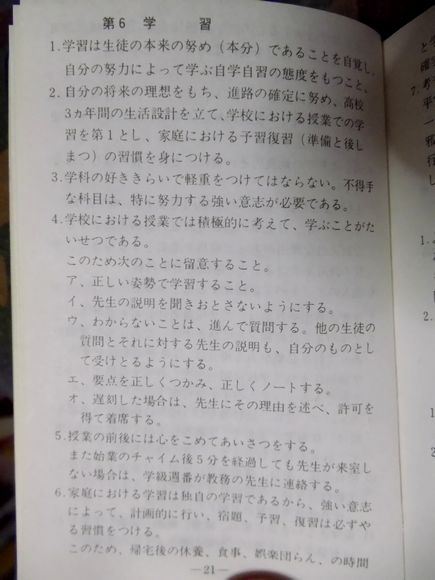 第6 学習
1.学習は生徒の本来の努め（本分）であることを自覚し、
自分の努力によって学ぶ自学自習の態度をもつこと。
2.自分の将来の理想をもち、進路の確定に努め、高校
3ヵ年間の生活設計を立て、学校における授業での学
習を第1とし、家庭における予習復習（準備と後し
まつ）の習慣を身につける。
3.学科の好ききらいで軽重をつけてはならない。不得手
な科目は、特に努力する強い意志が必要である。
4.学校における授業では積極的に考えて、学ぶことがた
いせつである。
このため次のことに留意すること。
ア、正しい姿勢で学習すること。
イ、先生の説明を聞きおとさないようにする。
ウ、わからないことは、進んで質問する。他の生徒の
質問とそれに対する先生の説明も、自分のものとし
て受けとるようにする。
エ、要点を正しくつかみ、正しくノートする。
オ、遅刻した場合は、先生にその理由を述べ、許可を
得て着席する。
5.授業の前後には心をこめてあいさつをする。
また始業のチャイム後5分を経過しても先生が来室し
ない場合は、学級週番が教務の先生に連絡する。
6.家庭における学習は独自の学習であるから、強い意志
によって、計画的に行い、宿題、予習、復習は必ずや
る習慣をつける。
このため、帰宅後の休養、食事、娯楽団らん、の時間
—21—
と
確
7.考
平
一
邪
行
1.
2.